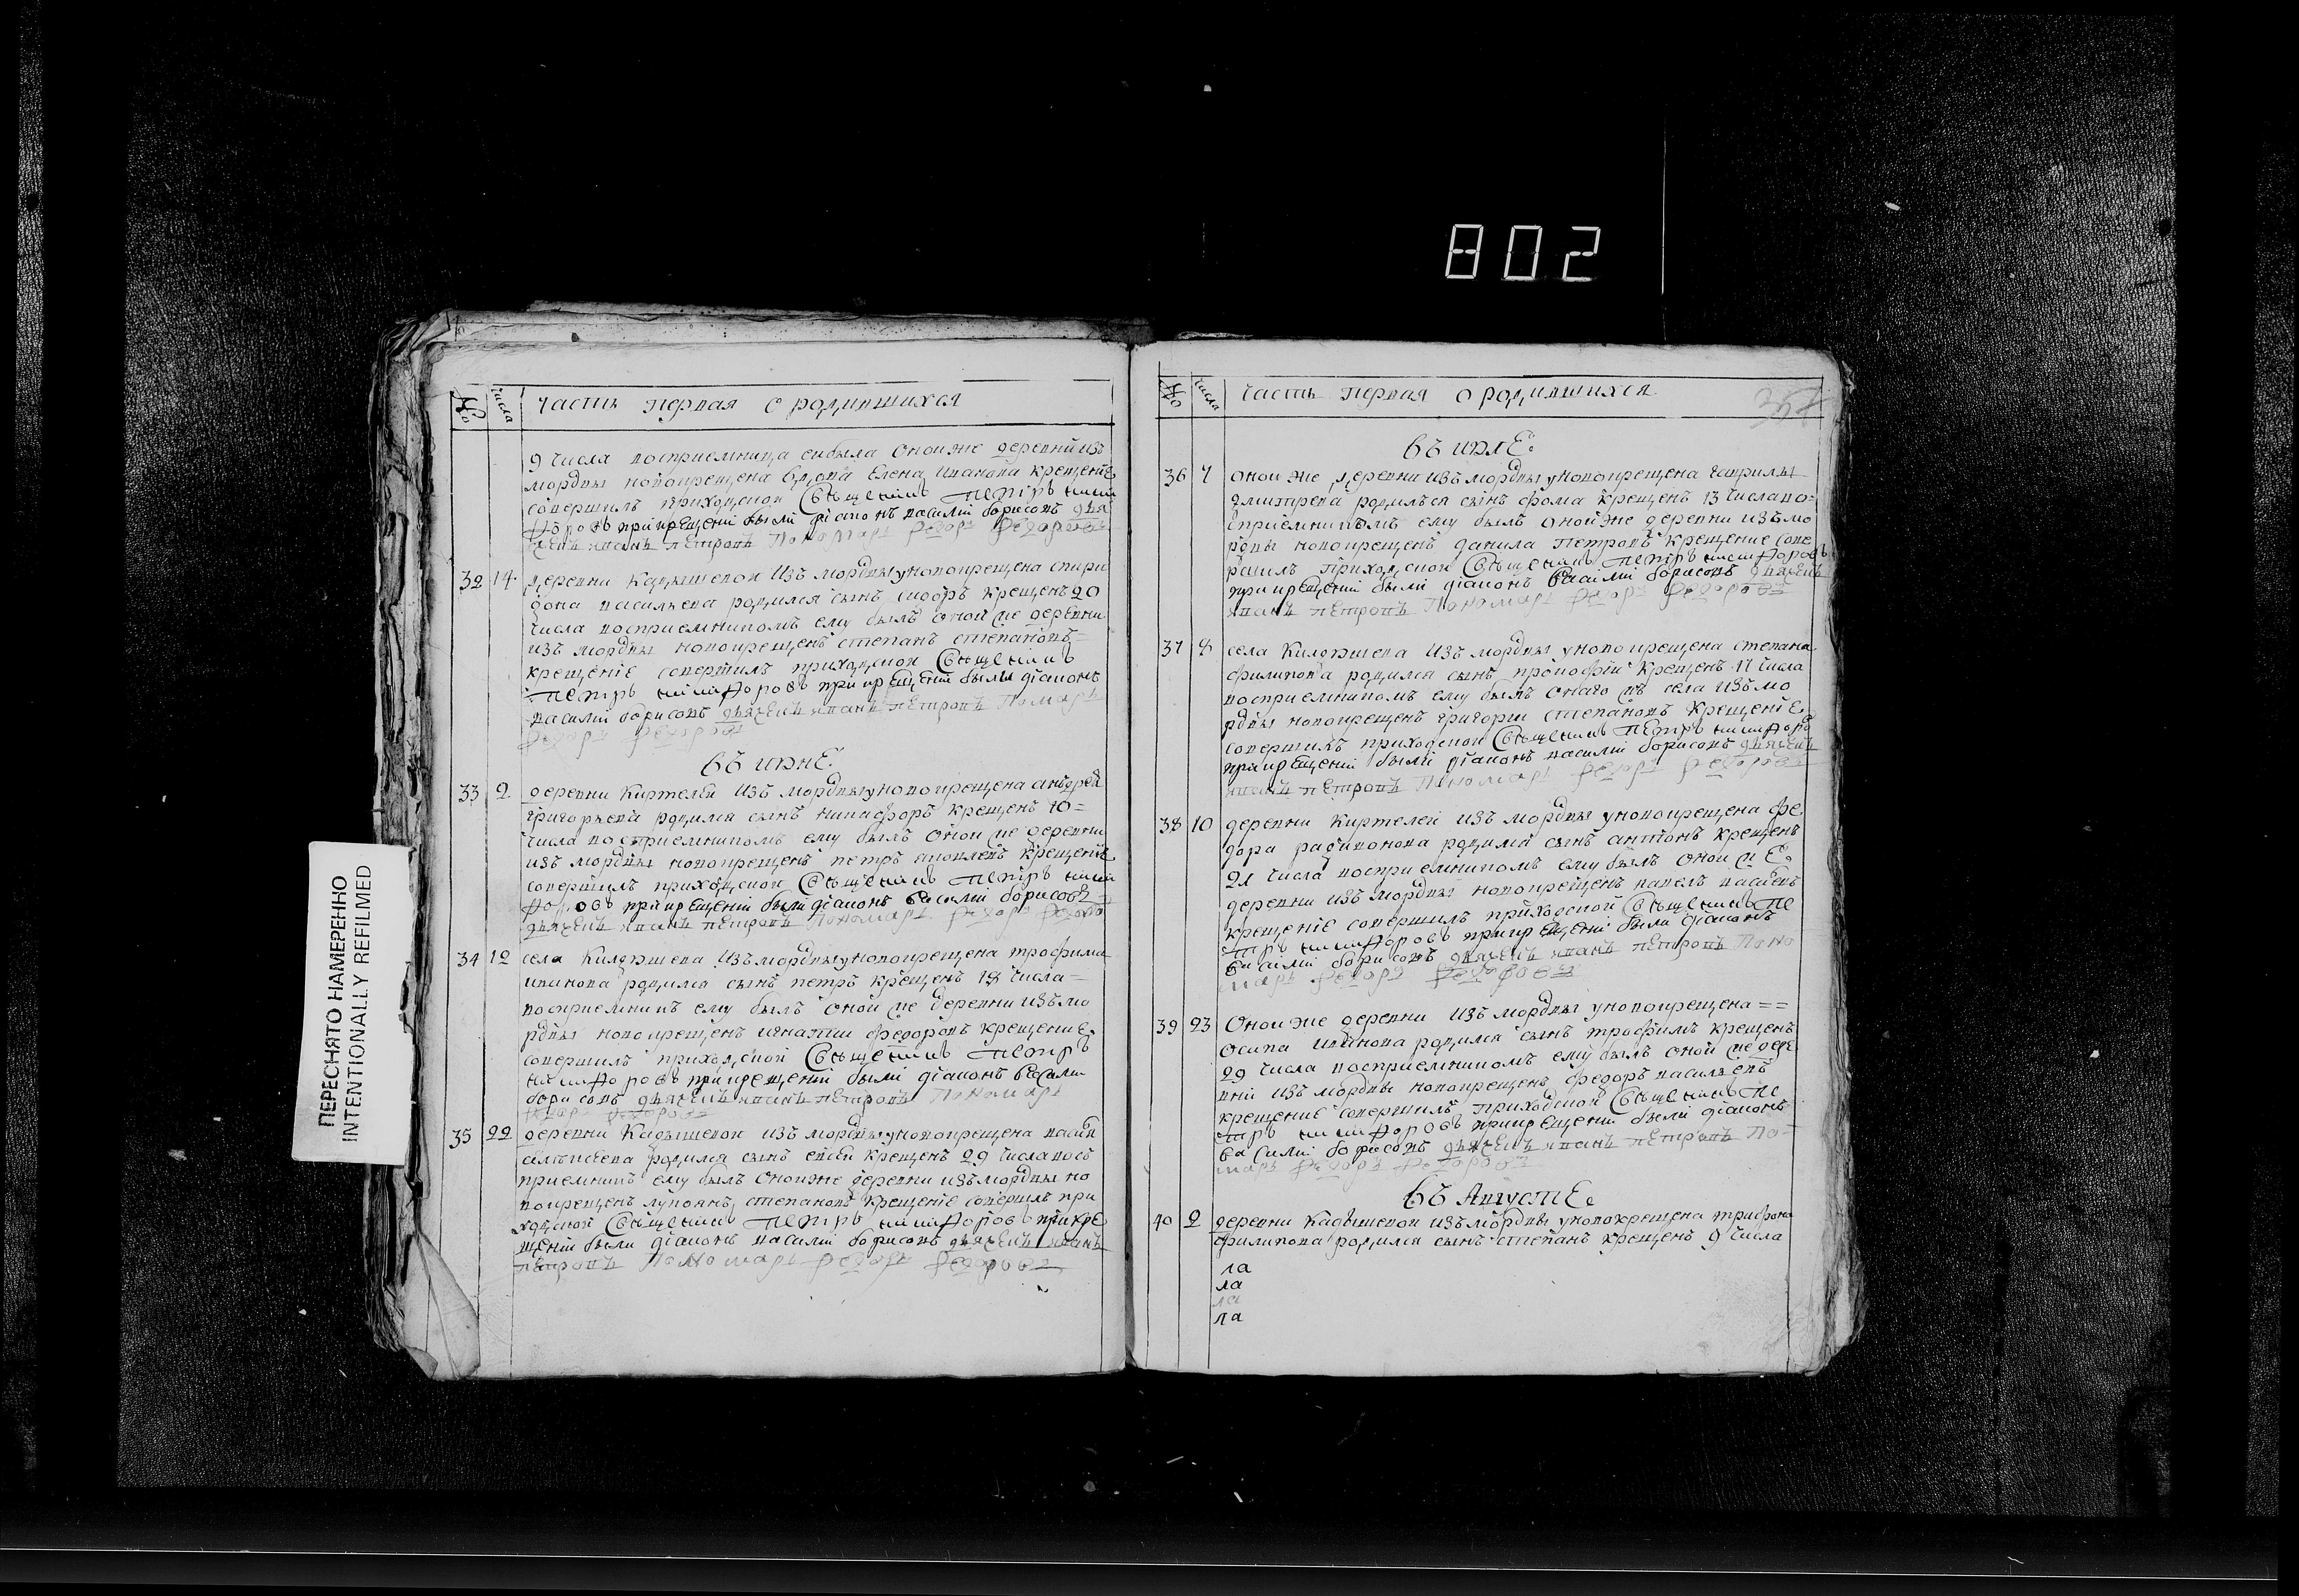 802
ПЕРЕСНЯТО НАМЕРЕННО
INTENTIONALLY REFILMED
№ числа часть первая о родившихся
9 числа восприемница ей была оной же деревни изъ
мордвы новокрещена вдова Елена иванова крещение
совершилъ приходской Священникъ Петръ ники
форовъ при крещении были діаконъ василій борисовъ дья
чекъ иванъ петровъ Пономарь федоръ федоровъ
32 14 деревни Кадышевой изъ мордвы у новокрещена спири
дона васильева родился сынъ сидоръ крещенъ 20
числа восприемникомъ ему былъ оной же деревни
изъ мордвы новокрещенъ степанъ степановъ=
крещеніе совершилъ приходской Священникъ
Петръ никифоровъ при крещеніи были діаконъ
василій борисовъ дьячекъ иванъ петровъ Помарь
федоръ федоровъ
въ июнѣ:
33 2 деревни Киртелей изъ мордвы у новокрещена андрея
григорьева родился сынъ никифоръ крещенъ 10=
числа восприемникомъ ему былъ оной же деревни
изъ мордвы новокрещенъ петръ яковлевъ крещение
совершилъ приходской Священникъ Петръ ники
форовъ при крещеніи были діаконъ василій борисовъ
дьячекъ иванъ петровъ Пономарь федоръ федоровъ
34 12 села Килдюшева изъ мордвы у новокрещена трофима
иванова родился сынъ петръ крещенъ 18 числа=
восприемникъ ему былъ оной же деревни изъ мо
рдвы новокрещенъ игнатии федоровъ крещение
совершилъ приходской Священникъ Петръ
никифоровъ при крещеніи были діаконъ васили
борисовъ дьячекъ иванъ петровъ Пономарь
федоръ федоровъ
35 22 деревни Кадышевой изъ мордвы у новокрещена
родился сынъ крещенъ 29 числа восъ
приемникъ ему былъ оной же деревни изъ мордвы но
вокрещенъ лукоянъ степановъ крещеніе совершилъ при
ходской Священникъ Петръ никифоровъ при кре
щеніи были діаконъ василій борисовъ дьячекъ иванъ
петровъ Пономарь федоръ федоровъ
№ числа часть первая о родившихся
въ июлѣ:
36 7 оной же деревни изъ мордвы у новокрещена гаврилы
дмитрева родился сынъ фома крещенъ 13 числа во=
сприемникомъ ему былъ оной же деревни изъ мо
рдвы новокрещенъ данила Петровъ крещение сове
ршилъ Приходской Священникъ Петръ никифоровъ
при крещеніи были діаконъ василій борисовъ дьячекъ
иванъ петровъ Пономарь федоръ федоровъ
37 8 села Килдюшева изъ мордвы у новокрещена степана
филипова родился сынъ прокофій крещенъ 17 числа
восприемникомъ ему былъ онаго жъ села изъ мо
рдвы новокрещенъ григории степановъ крещеніе
совершилъ приходской Священникъ Петръ никифоровъ
при крещеніи были діаконъ василий борисовъ дьячекъ
иванъ петровъ Пономарь федоръ федоровъ
38 10 деревни Киртелей изъ мордвы у новокрещена фе
дора радионова родился сынъ антонъ крещенъ
21 числа восприемникомъ ему былъ оной же
деревни изъ мордвы новокрещенъ павелъ
крещеніе совершилъ приходской Священникъ Пе
тръ никифоровъ при крещеніи были діаконъ
василий борисовъ дьячекъ иванъ петровъ Поно
марь федоръ федоровъ
39 23 Оной же деревни изъ мордвы у новокрещена==
осипа иванова родился сынъ трофимъ крещенъ
29 числа восприемникомъ ему былъ оной же дере
вни изъ мордвы новокрещенъ федоръ васильевъ
крещение совершилъ приходской Священникъ Пе
тръ никифоровъ при крещеніи были діаконъ
василий борисовъ дьячекъ иванъ петровъ По=
марь федоръ федоровъ
въ Августѣ
40 2 деревни Кадышевой изъ мордвы у новокрещена трифона
филипова родился сынъ степанъ крещенъ 9 числа
ла
ла
ла
ла